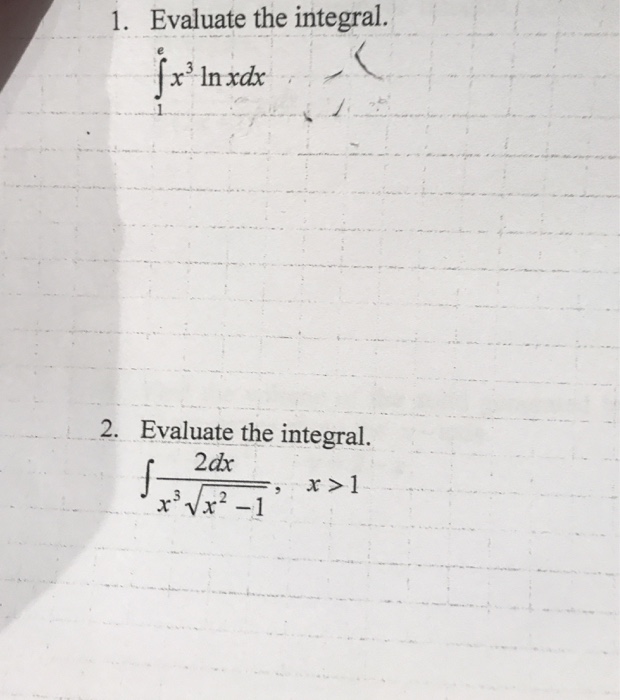 1. Evaluate the integral.
∫₁ᵉ x³ ln xdx
2. Evaluate the integral.
∫ 2dx / (x³√(x² − 1)), x > 1